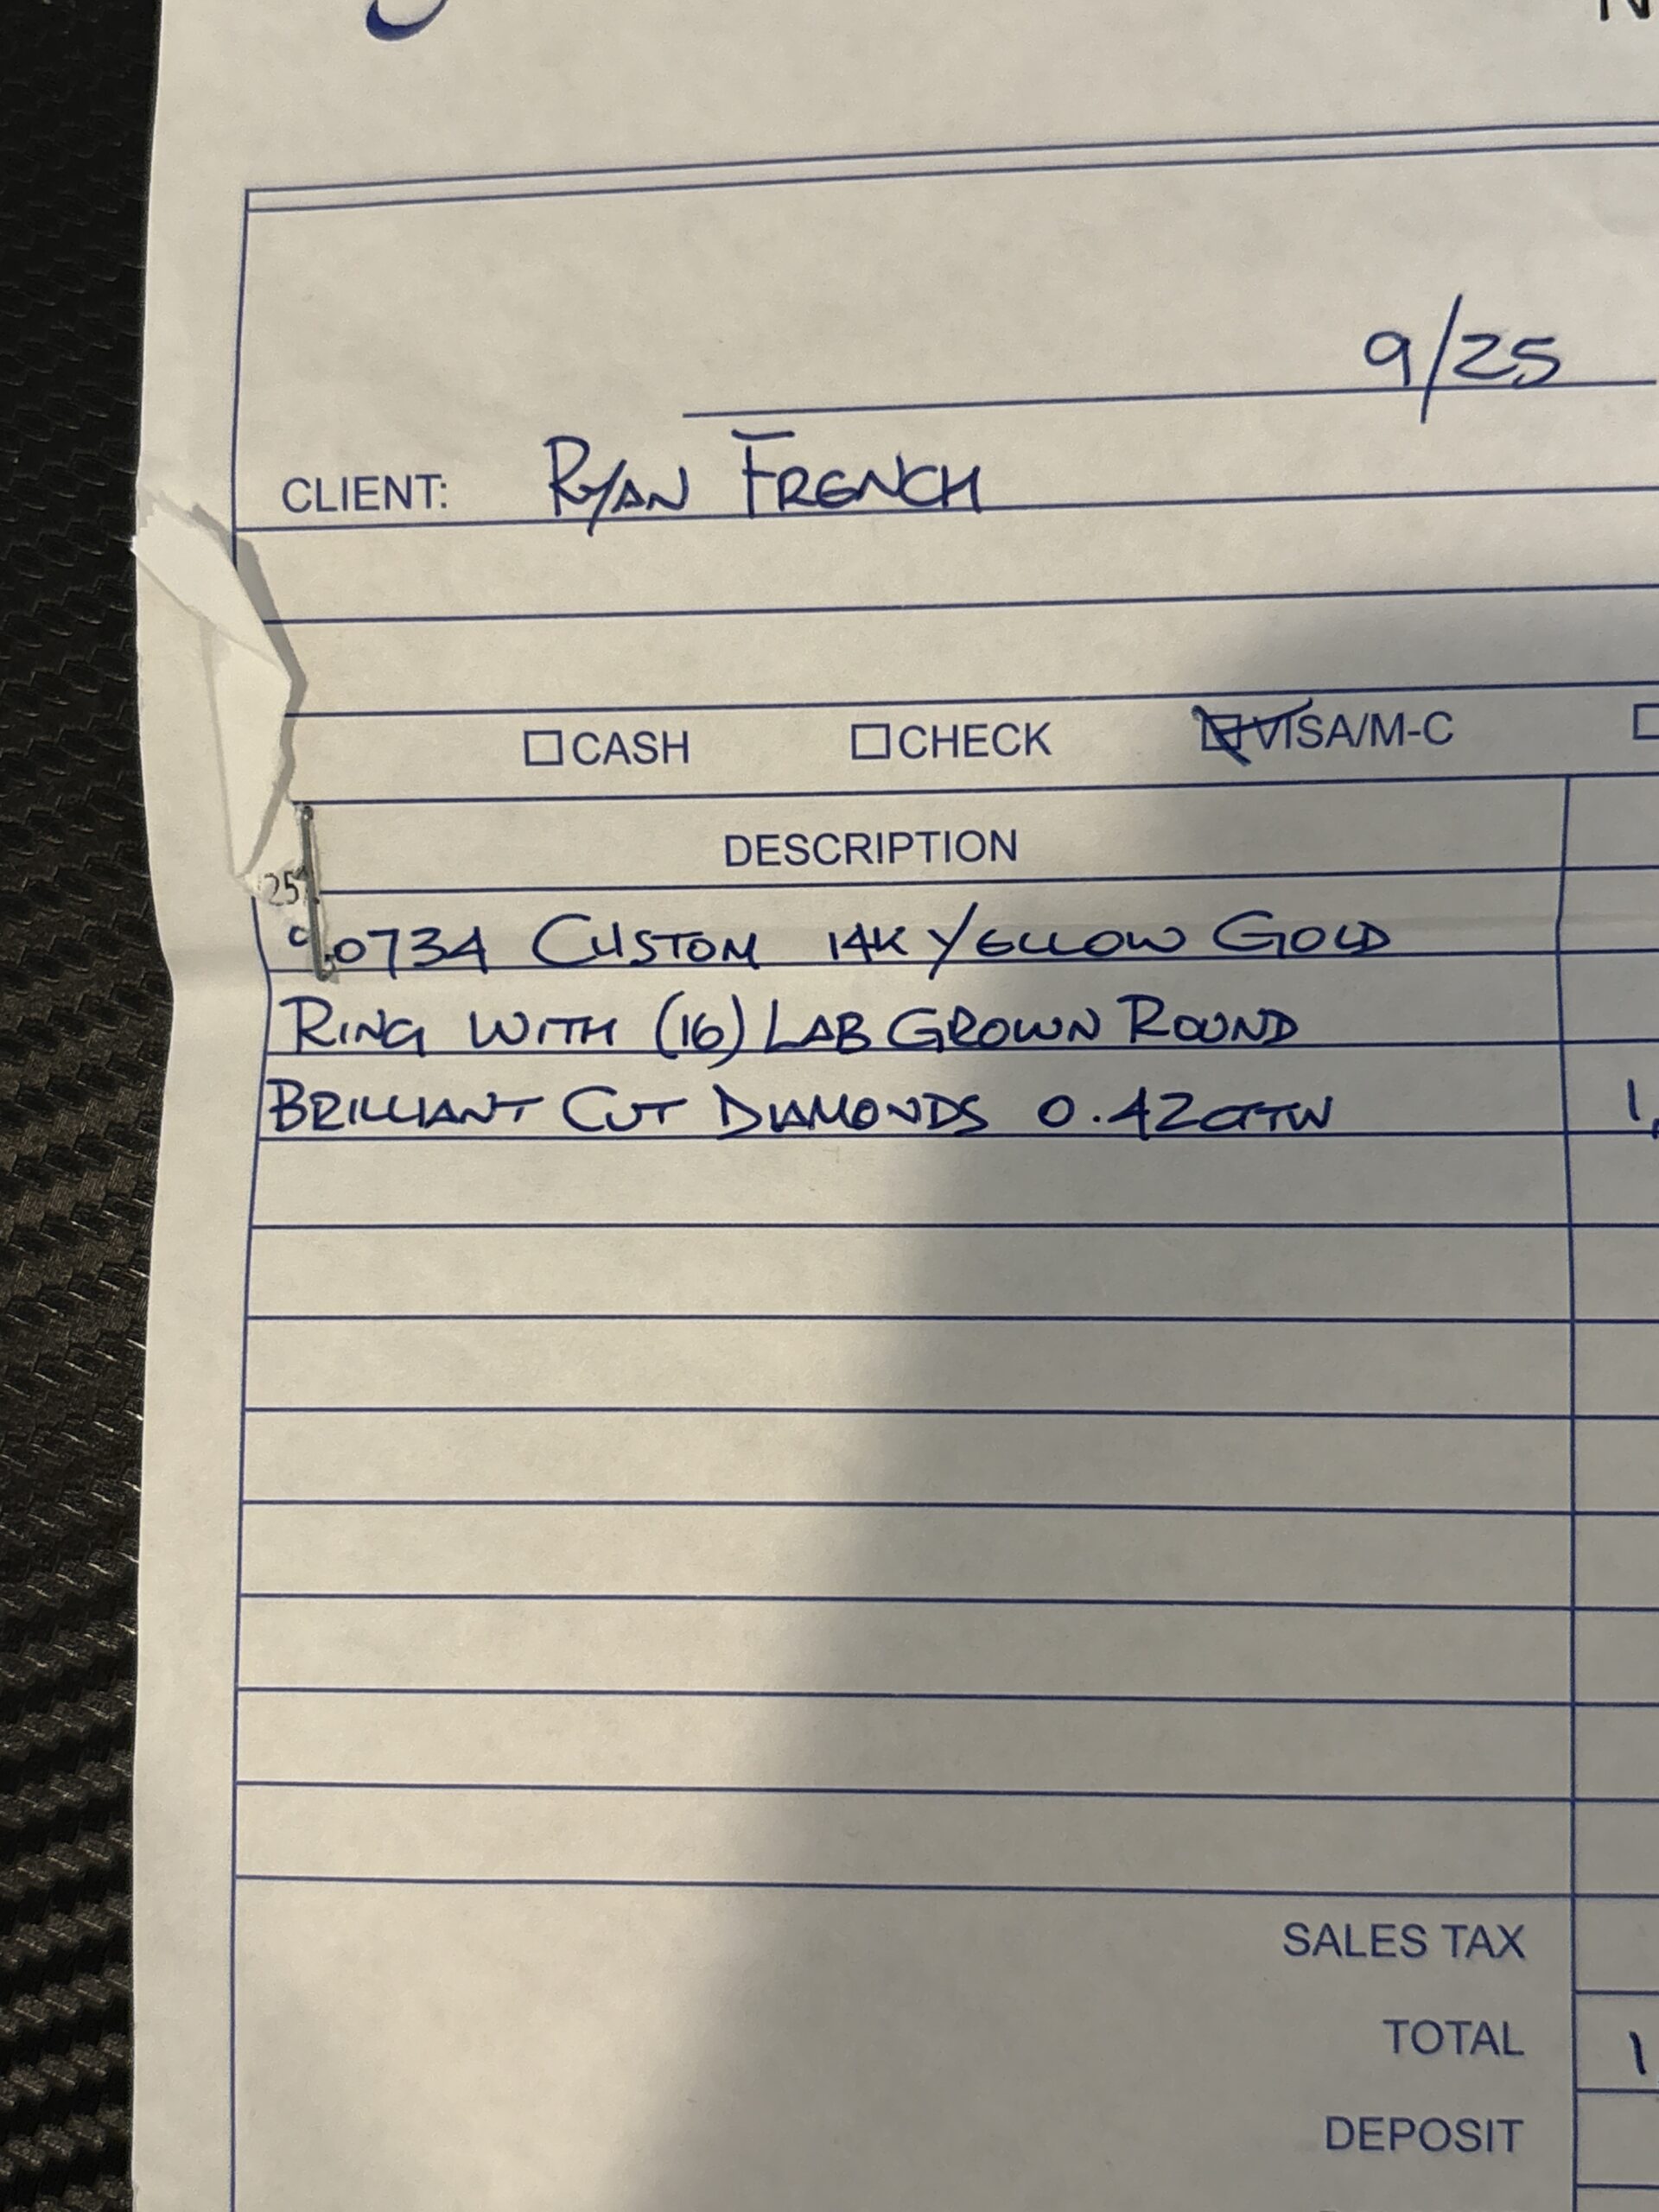 9/25
CLIENT: RYAN FRENCH
CASH CHECK VISA/M-C
DESCRIPTION
25
0734 CUSTOM 14K YELLOW GOLD
RING WITH (16) LAB GROWN ROUND
BRILLIANT CUT DIAMONDS 0.42CTTW 1,
SALES TAX
TOTAL 1
DEPOSIT